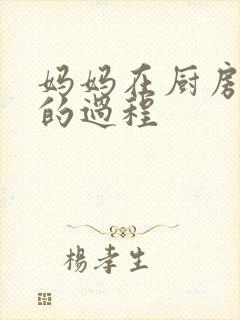 妈妈在厨房
的過程
楊孝生